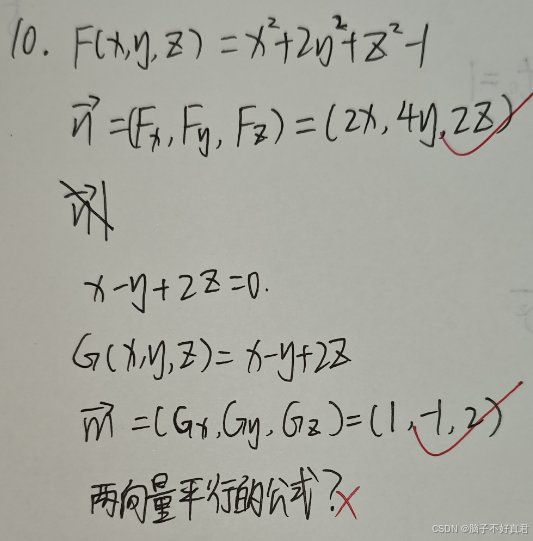 10. F(x,y,z) = x²+2y²+z²-1
n⃗ =(Fx, Fy, Fz) = (2x, 4y, 2z)
x-y+2z=0.
G(x,y,z)= x-y+2z
m⃗ =(Gx,Gy,Gz)=(1,-1,2)
两向量平行的公式?
CSDN @脑子不好真君